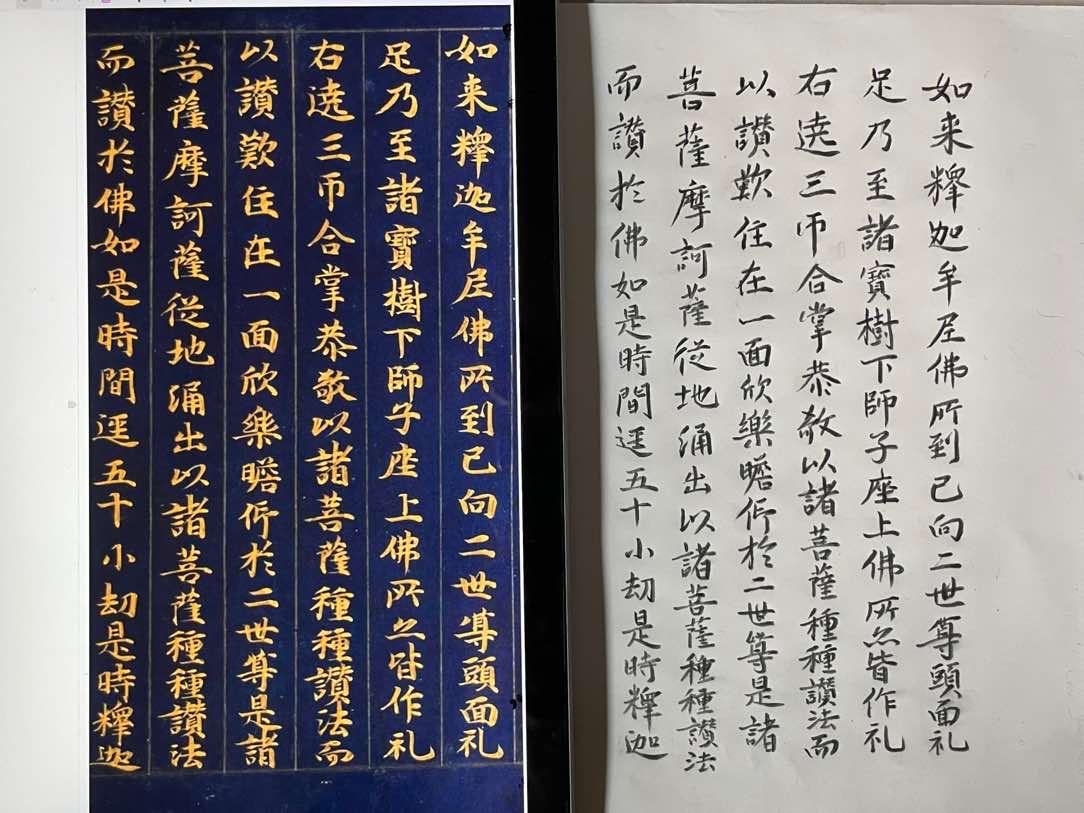 如来釋迦牟尼佛所到已向二世尊頭面礼
足乃至諸寶樹下師子座上佛所亦皆作礼
右遶三帀合掌恭敬以諸菩薩種種讃法而
以讃歎住在一面欣樂瞻仰於二世尊是諸
菩薩摩訶薩從地涌出以諸菩薩種種讃法
而讃於佛如是時間逕五十小劫是時釋迦
如来釋迦牟尼佛所到已向二世尊頭面礼
足乃至諸寶樹下師子座上佛所亦皆作礼
右遶三帀合掌恭敬以諸菩薩種種讃法而
以讃歎住在一面欣樂瞻仰於二世尊是諸
菩薩摩訶薩從地涌出以諸菩薩種種讃法
而讃於佛如是時間逕五十小劫是時釋迦